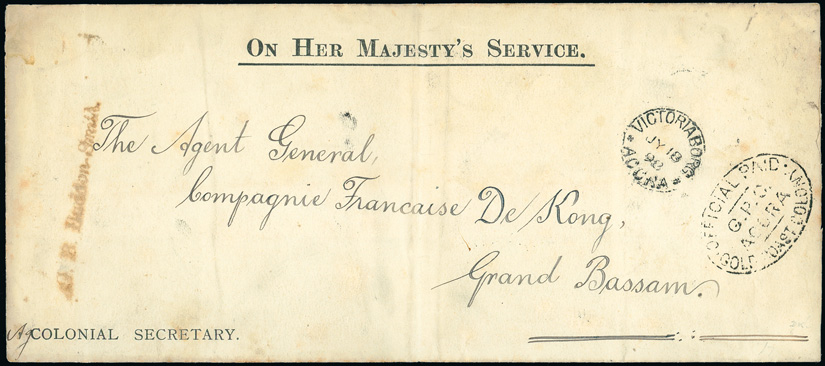 ON HER MAJESTY'S SERVICE.
The Agent General,
Compagnie Francaise De Kong,
Grand Bassam.
Ag COLONIAL SECRETARY.
* VICTORIABORG *
JY 18
ACCRA
OFFICIAL PAID.
G.P.O
ACCRA
GOLD COAST COLONY